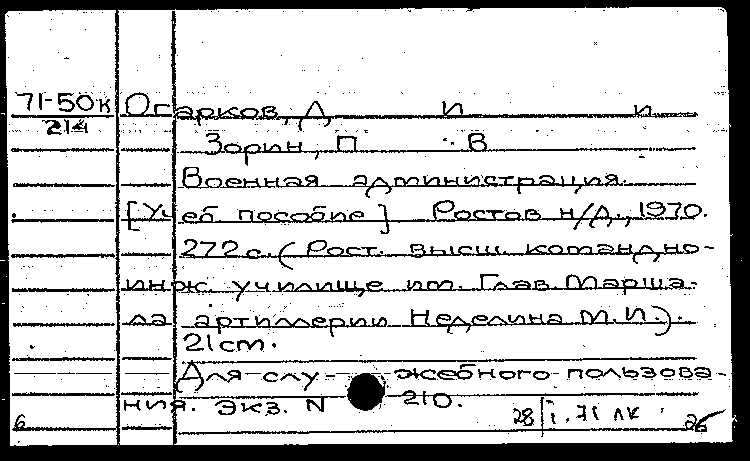 71-50к Огарков, Д и и
214
Зорин, П В
Военная администрация.
[Уч. пособие] Ростов н/Д., 1970.
272 с. (Рост. высш. командно-
инж. училище им. Глав. Марша-
ла артиллерии Неделина М.И.).
21 cm.
Для слу- жебного пользова-
ния. Экз. N 210.
6 28 I. 71 ЛК 26